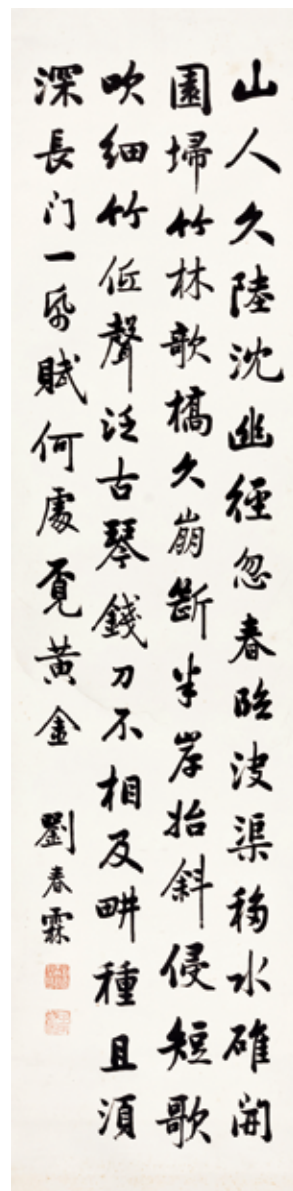 山人久陸沈幽徑忽春臨渠移水碓開
園埽竹林歌橋久崩斷半岸始斜侵短歌
吹細竹低聲泛古琴錢刀不相及畊種且須
深長门一帋賦何處覓黃金
劉春霖